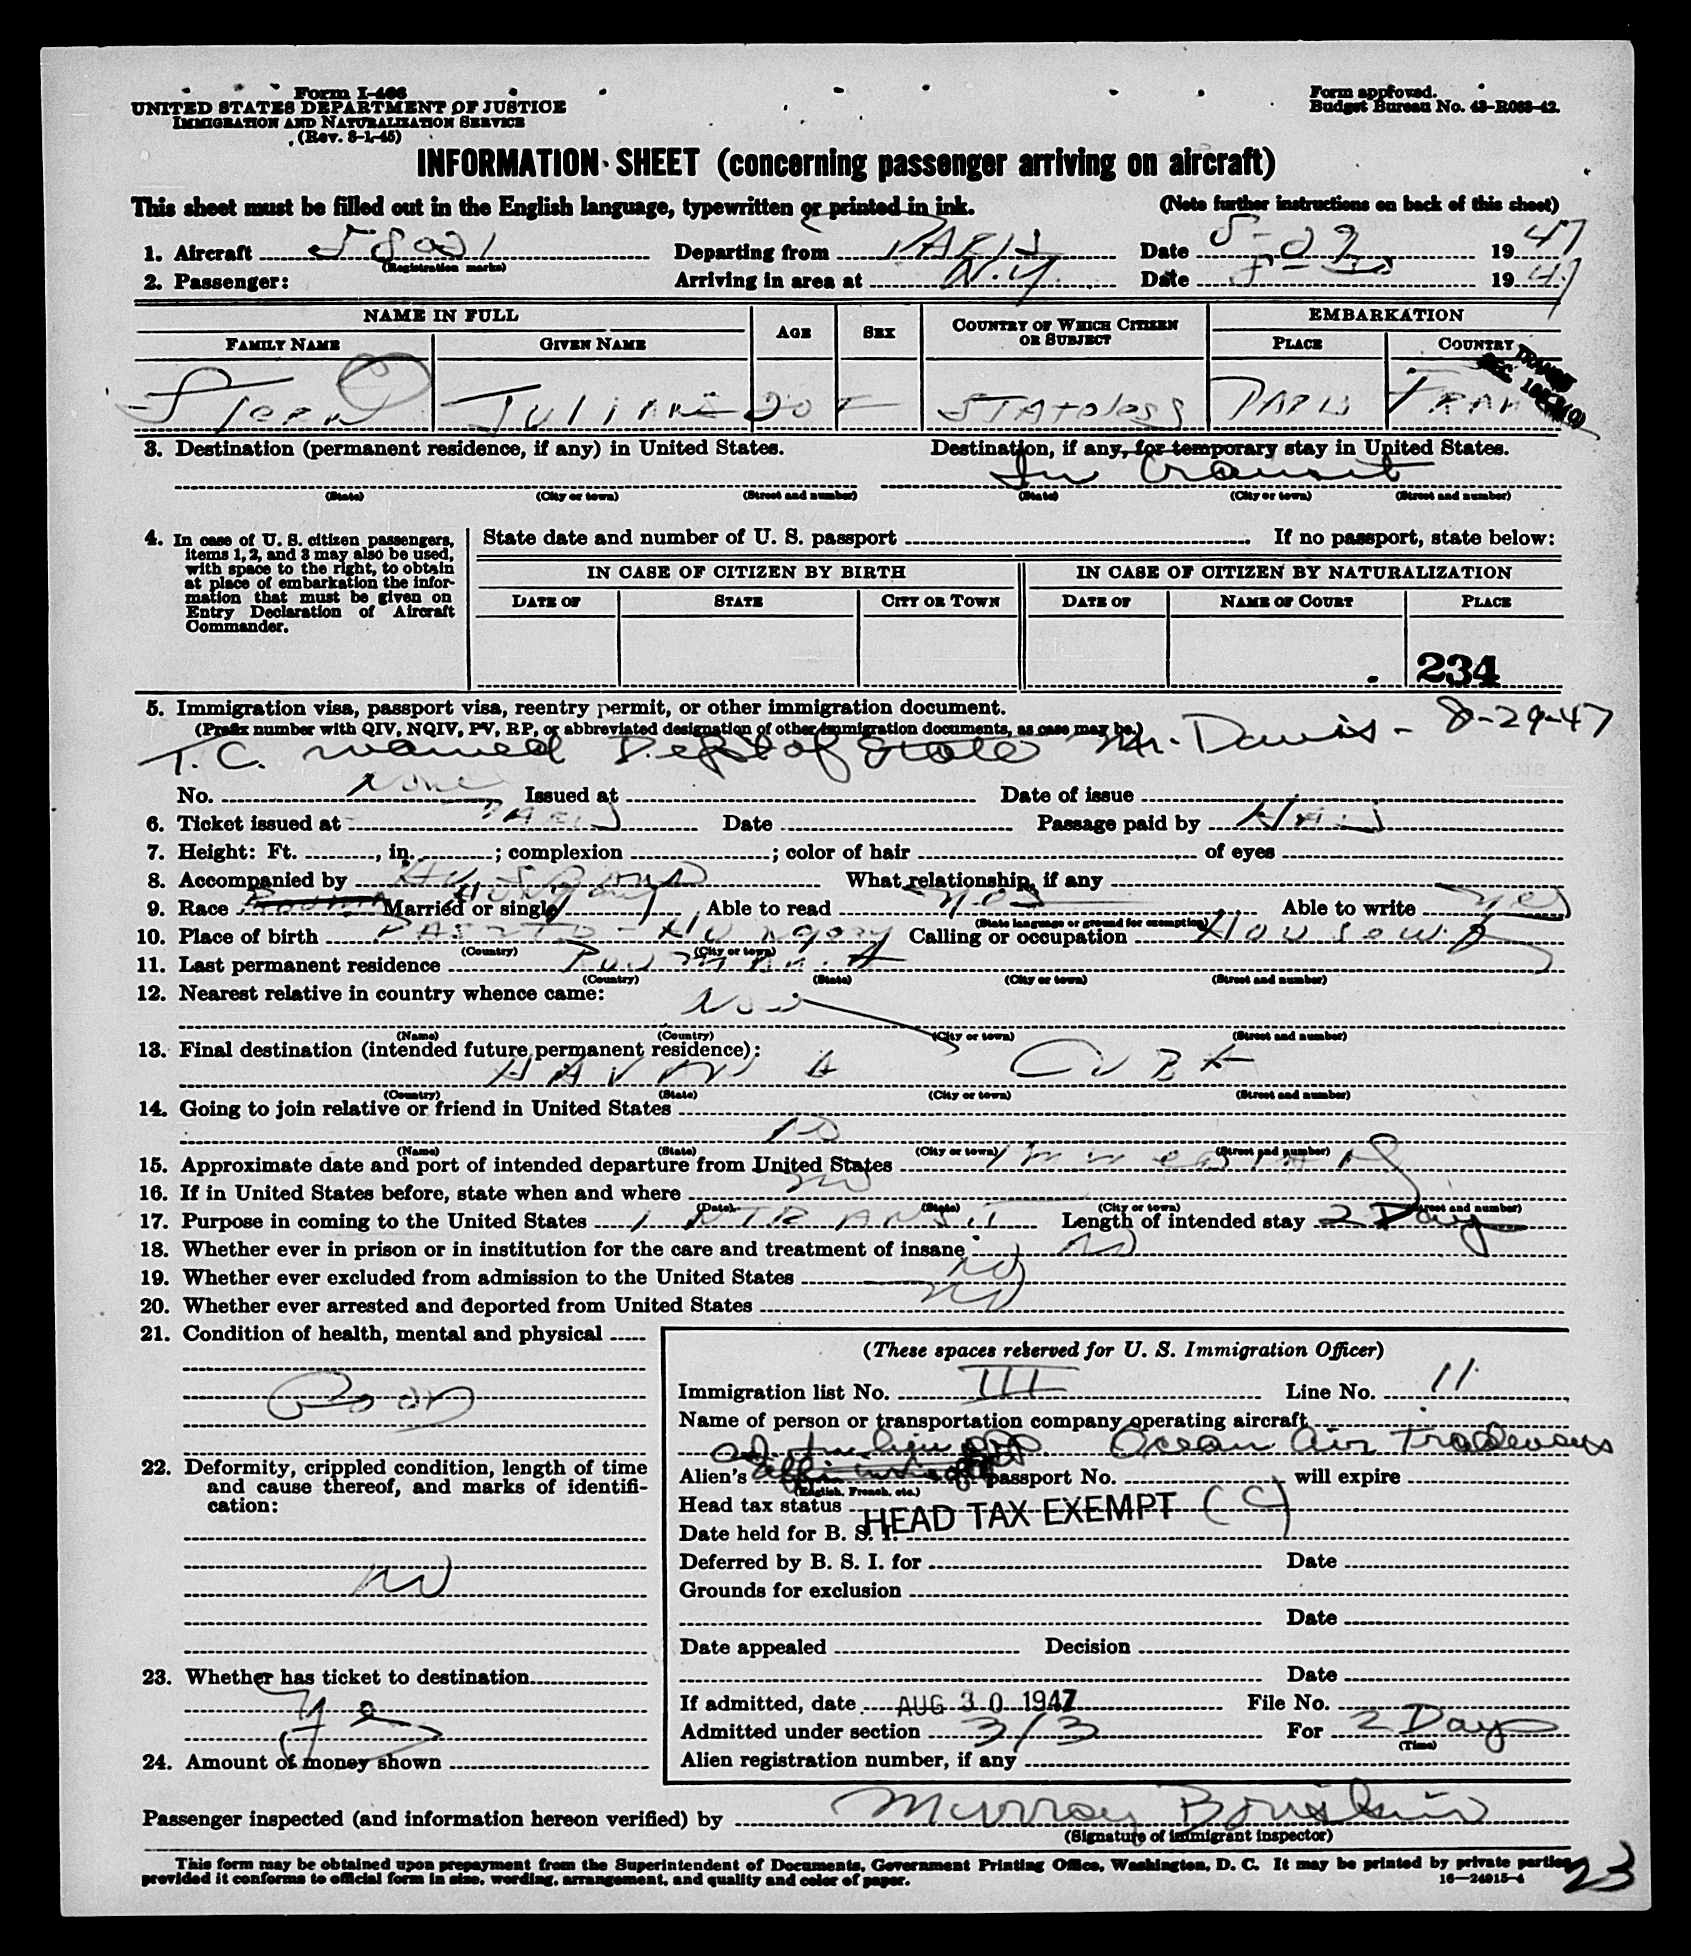 Form I-466
UNITED STATES DEPARTMENT OF JUSTICE
IMMIGRATION AND NATURALIZATION SERVICE
(Rev. 8-1-45)
Form approved.
Budget Bureau No. 43-R083-42.
INFORMATION SHEET (concerning passenger arriving on aircraft)
This sheet must be filled out in the English language, typewritten or printed in ink.
(Note further instructions on back of this sheet)
1. Aircraft Departing from PARIS Date 8-29 1947
(Registration marks)
2. Passenger: Arriving in area at N.Y. Date 1947
NAME IN FULL AGE SEX COUNTRY OF WHICH CITIZEN OR SUBJECT EMBARKATION
FAMILY NAME GIVEN NAME PLACE COUNTRY
Stern F Stateless PARIS
TRANSIT
3. Destination (permanent residence, if any) in United States. Destination, if any, for temporary stay in United States.
In transit
(State) (City or town) (Street and number) (State) (City or town) (Street and number)
4. In case of U. S. citizen passengers, items 1, 2, and 3 may also be used, with space to the right, to obtain at place of embarkation the information that must be given on Entry Declaration of Aircraft Commander.
State date and number of U. S. passport If no passport, state below:
IN CASE OF CITIZEN BY BIRTH IN CASE OF CITIZEN BY NATURALIZATION
DATE OF STATE CITY OR TOWN DATE OF NAME OF COURT PLACE
234
5. Immigration visa, passport visa, reentry permit, or other immigration document.
(Prefix number with QIV, NQIV, PV, RP, or abbreviated designation of other immigration documents, as case may be.)
T.C. waived Dept of State Mr. Davis - 8-29-47
No. None Issued at Date of issue
6. Ticket issued at PARIS Date Passage paid by
7. Height: Ft. , in. ; complexion ; color of hair of eyes
8. Accompanied by What relationship, if any
9. Race Married or single Able to read yes Able to write yes
(State language or ground for exemption)
10. Place of birth Hungary Calling or occupation Housewife
(Country) (City or town)
11. Last permanent residence
(Country) (State) (City or town) (Street and number)
12. Nearest relative in country whence came:
(Name) (Country) (City or town) (Street and number)
13. Final destination (intended future permanent residence):
HAVANA CUBA
(Country) (State) (City or town) (Street and number)
14. Going to join relative or friend in United States
no
(Name) (State) (City or town) (Street and number)
15. Approximate date and port of intended departure from United States
16. If in United States before, state when and where no
(Date) (State) (City or town) (Street and number)
17. Purpose in coming to the United States INTRANSIT Length of intended stay 2 Days
18. Whether ever in prison or in institution for the care and treatment of insane no
19. Whether ever excluded from admission to the United States no
20. Whether ever arrested and deported from United States no
21. Condition of health, mental and physical
Good
22. Deformity, crippled condition, length of time and cause thereof, and marks of identification:
no
23. Whether has ticket to destination
yes
24. Amount of money shown
(These spaces reserved for U. S. Immigration Officer)
Immigration list No. III Line No. 11
Name of person or transportation company operating aircraft
Ocean Air Tradeways
Alien's passport No. will expire
(English, French, etc.)
Head tax status
HEAD TAX EXEMPT (C)
Date held for B. S. I.
Deferred by B. S. I. for Date
Grounds for exclusion
Date
Date appealed Decision
Date
If admitted, date AUG 30 1947 File No.
Admitted under section 3/3 For 2 Days
(Time)
Alien registration number, if any
Passenger inspected (and information hereon verified) by Murray
(Signature of immigrant inspector)
This form may be obtained upon prepayment from the Superintendent of Documents, Government Printing Office, Washington, D. C. It may be printed by private parties
provided it conforms to official form in size, wording, arrangement, and quality and color of paper.
16—24915-4
23